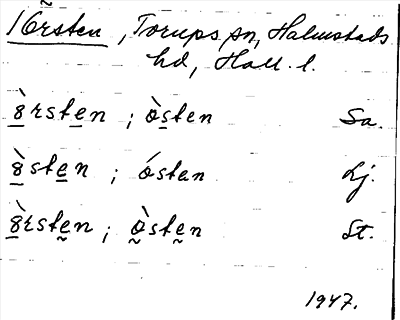 16rsten, Torups sn, Halmstads
hd, Hall. l.
8̀rsten ; òsten Sa.
8̀sten ; ósten Lj.
8̀rsten ; òsten St.
1947.